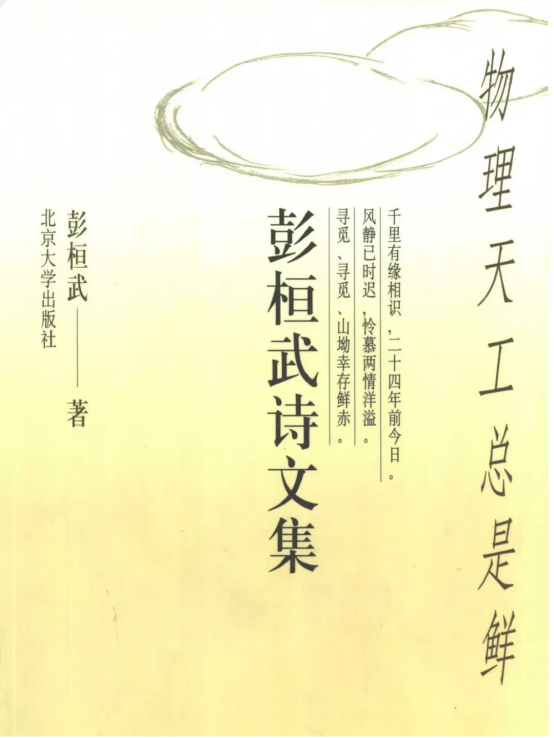 物理天工总是鲜
千里有缘相识，二十四年前今日。
风静已时迟，怜慕两情洋溢。
寻觅、寻觅、山坳幸存鲜赤。
彭桓武诗文集
彭桓武——著
北京大学出版社